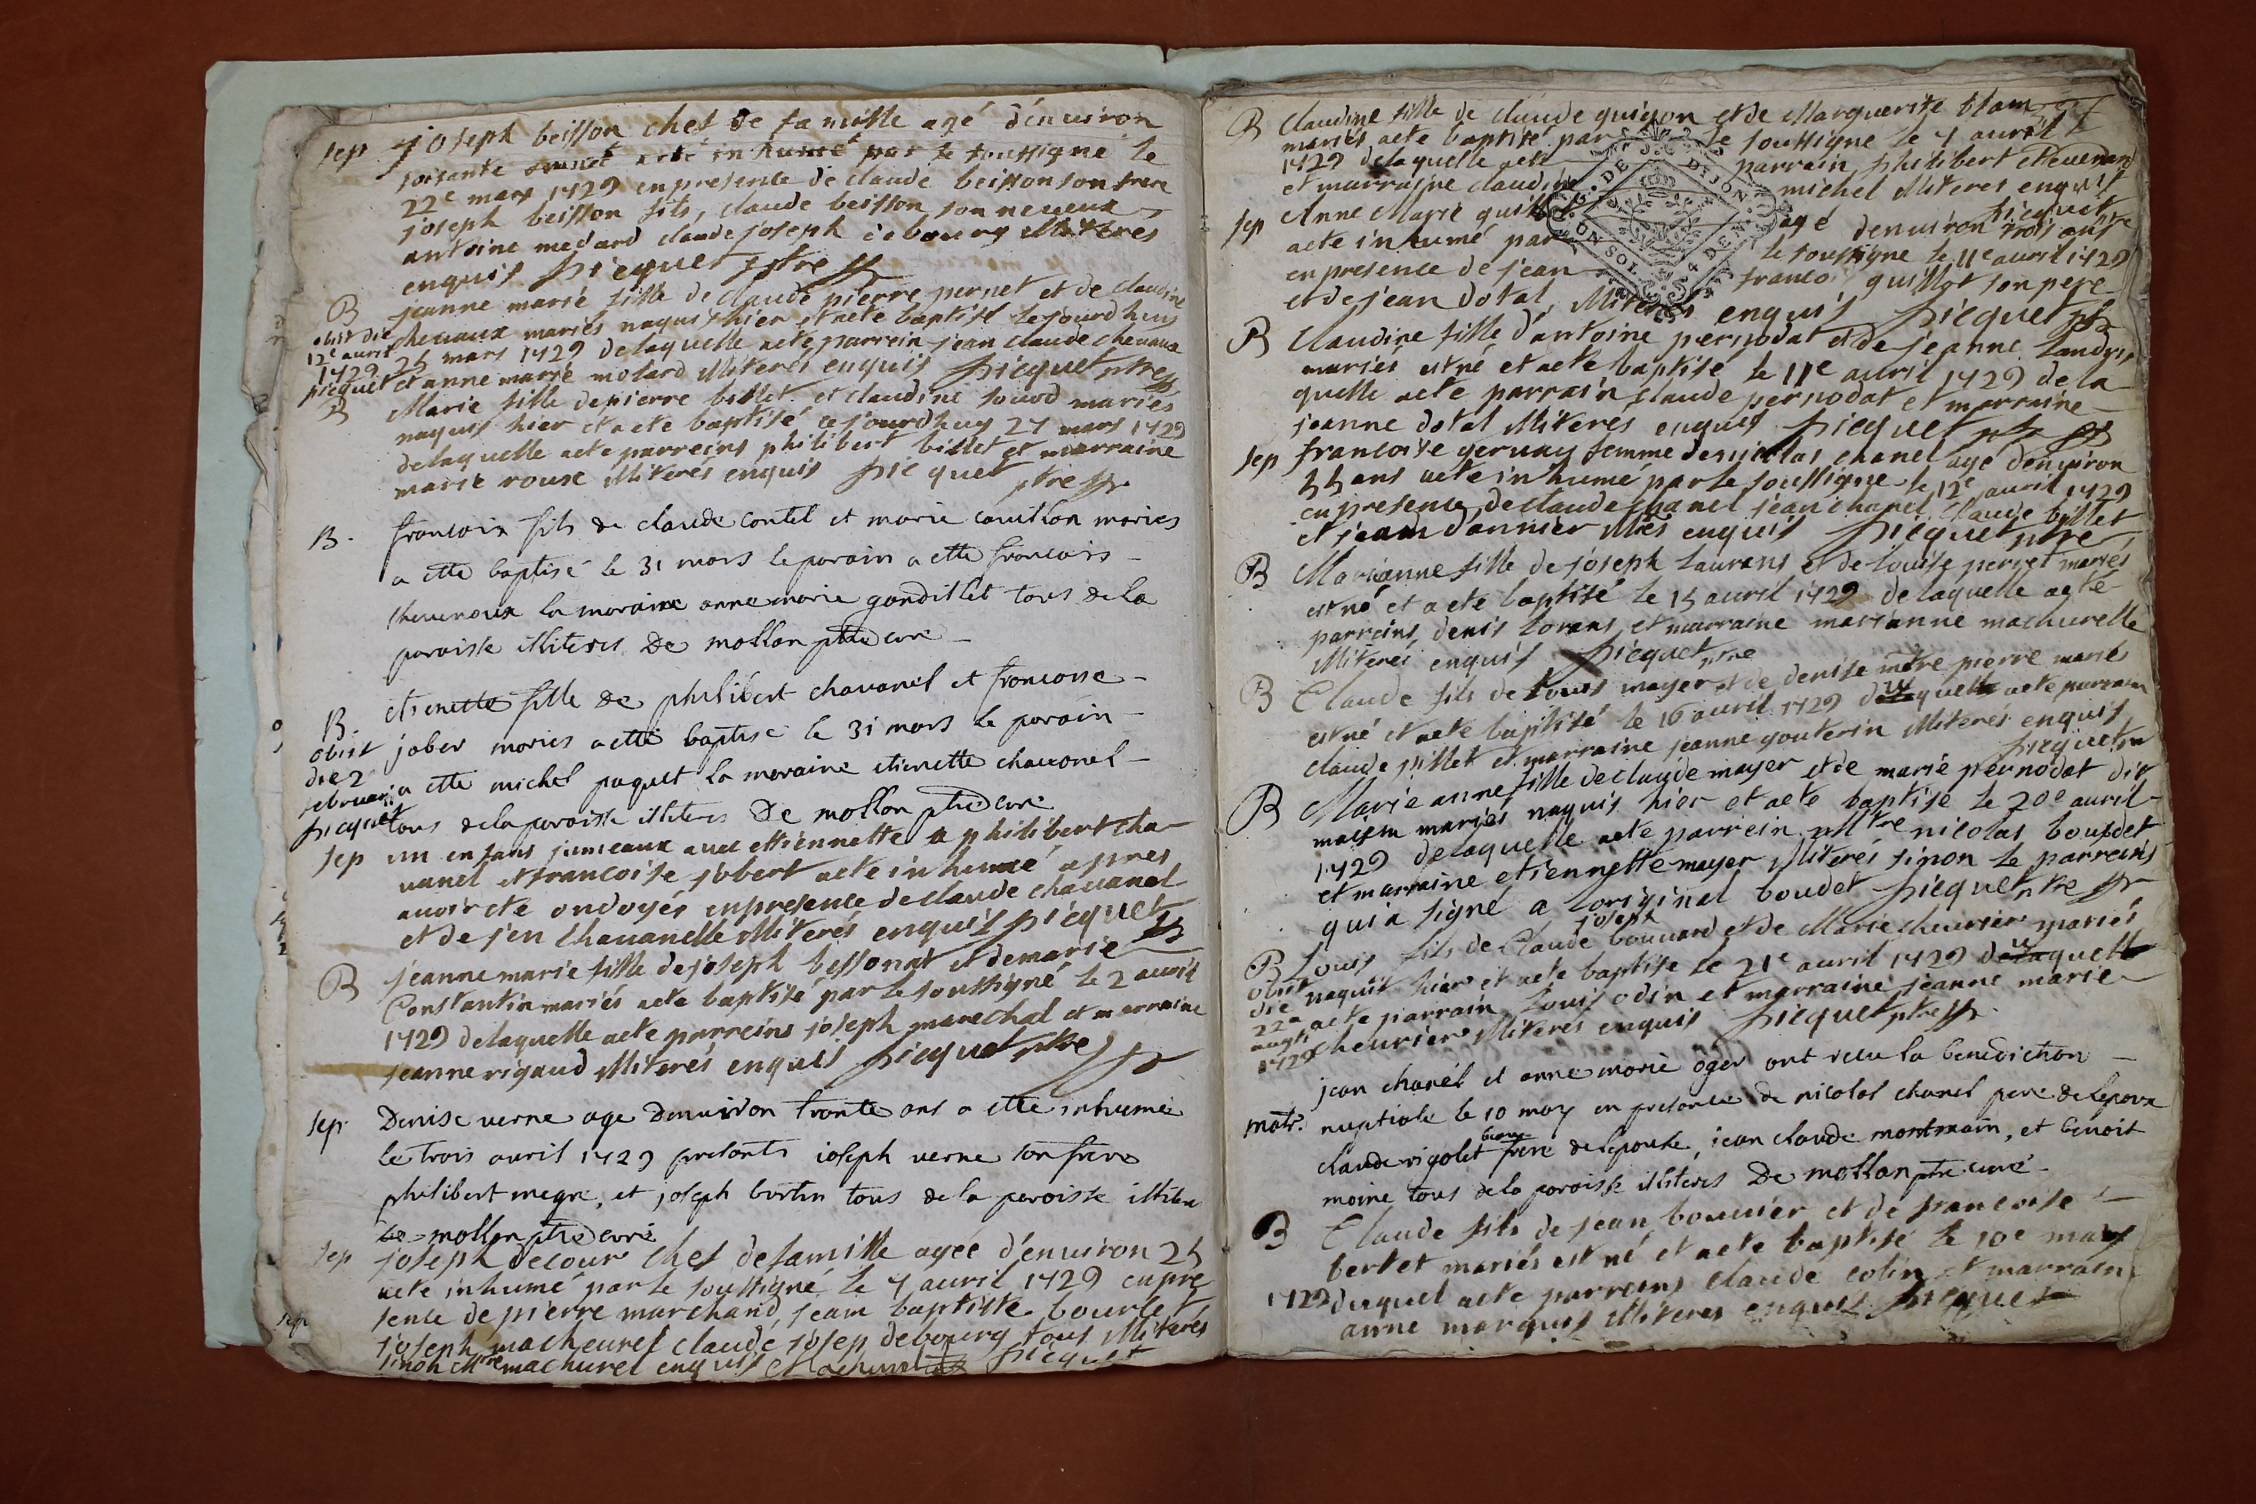 sep joseph beisson chef de famille agé d'environ
soixante aété inhumé par le soussigné le
22e mars 1729 en presence de claude beisson son frere
joseph beisson fils, claude beisson son neveux
antoine medard claude joseph debourg illiteres
enquis picquet ptre
B jeanne marie fille de claude pierre pernet et de claudine
obiit die chevaux mariés naquis hier et aete baptisé cejourdhuy
12e avril 25 mars 1729 delaquelle aeté parrein jean claude chevaux
1729 picquet et anne marie molard illiterés enquis picquet ptre
B Marie fille depierre billet et claudine mariés
naquis hier et aete baptisé cejourdhuy 27 mars 1729
delaquelle aete parreins philibert billet et marraine
marie rouse illiterés enquis picquet ptre
B. francois fils de claude contel et marie couillon maries
a ette baptisé le 31 mars le parain a ette francois
cheuuroux la maraine anne marie gandillet tous de la
paroisse illiteres De mollan ptre cure
B. etienette fille de philibert chavanel et francoise
obiit jober maries a etté baptise le 31 mars le parain
die 2 februarii a etté michel paquet la maraine etienette chavanel
picquet tous de la paroisse illiteres De mollan ptre cure
sep un enfans jumeaux avec ettiennette a philibert cha
vanel et francoise jobert aete inhumé apres
avoir eté ondoyés enpresence de claude chavanel
et de jen chavanelle illiterés enquis picquet
B jeanne marie fille dejoseph bessonat et demarie
Constantin mariés aete baptisé par le soussigné le 2 avril
1729 delaquelle aete parreins joseph marechal et marraine
jeanne rigaud illiterés enquis picquet ptre
sep. Denise verne age Denuiron trante ans a etté inhumée
le trois auril 1729 presants joseph verne son frere
philibert megre, et joseph bertin tous de la paroisse
De mollan ptre curé
sep joseph decour chef defamille agée d'environ 25
aete inhumé par le soussigné le 4 avril 1729 enpre
sence de pierre marchand, jean baptiste bourlet
sep joseph macheurel claude josep debourg tous illiteres
sinon Mtre machurel enquis picquet
B Claudine fille de claude guigon et de Marguerite blam
mariés aete baptisé par le soussigné le 4 avril
1729 delaquelle aete parrain philibert chevenard
et marraine claudine michel illiteres enquis
picquet ptre
sep Anne Marie agé denviron trois ans
aete inhumé par le soussigné le 11e avril 1729
en presence de jean francois guillot son pere
et de jean dotal, illiterés enquis picquet ptre
B Claudine fille d'antoine pernodat et de jeanne landry
mariés est né et aete baptisé le 11e avril 1729 dela
quelle aete parrain claude pernodat et marraine
jeanne dotal illiteres enquis picquet ptre
sep francoise gervay femme denicolas chanel agé denviron
55 ans aete inhumé par le soussigné le 12e avril 1729
en presence de claude chanel jean chanel claude billet
et jean dannier illrés enquis picquet ptre
B Marianne fille de joseph laurans et de louise perret mariés
est né et aete baptisé le 15 avril 1729 delaquelle aeté
parreins denis lorans et marraine marianne machurelle
illiterés enquis picquet ptre
B Claude fils de louis mayer et de denise mtre pierre mariés
est né et aete baptisé le 16 avril 1729 duquel aeté parrain
claude pillet et marraine jeanne gouterin illiterés enquis
picquet ptre
B Marie anne fille de claude mayer et de marie pernodat dit
mariés naquis hier et aete baptise le 20e avril
1729 delaquelle aete parrein mtre nicolas boudet
et marraine etiennette mayer illiterés sinon le parreins
qui a signé a loriginal boudet picquet ptre
joseph
B Louis fils de Claude bouvard et de Marie cheurier mariés
obiit naquis hier et aete baptise le 21e avril 1729 duquel
die aete parrain louis odin et marraine jeanne marie
22a augti 1729 cheurier illiteres enquis picquet ptre
jean chanel et anne marie oger ont recu la benediction
matr. nuptiale le 10 may en presance de nicolas chanel pere de lepoux
beau
claude rigolet frere de lepouse, jean claude montmain, et benoit
moine tous de la paroisse illiteres De mollan ptre curé
B Claude fils de jean bouvier et de francoise
bertet mariés est né et aete baptisé le 10e may
1729 duquel aete parreins claude colin et marraine
anne marquis illiteres enquis picquet
G. DE DIJON
ON SOL. 4 DEN.